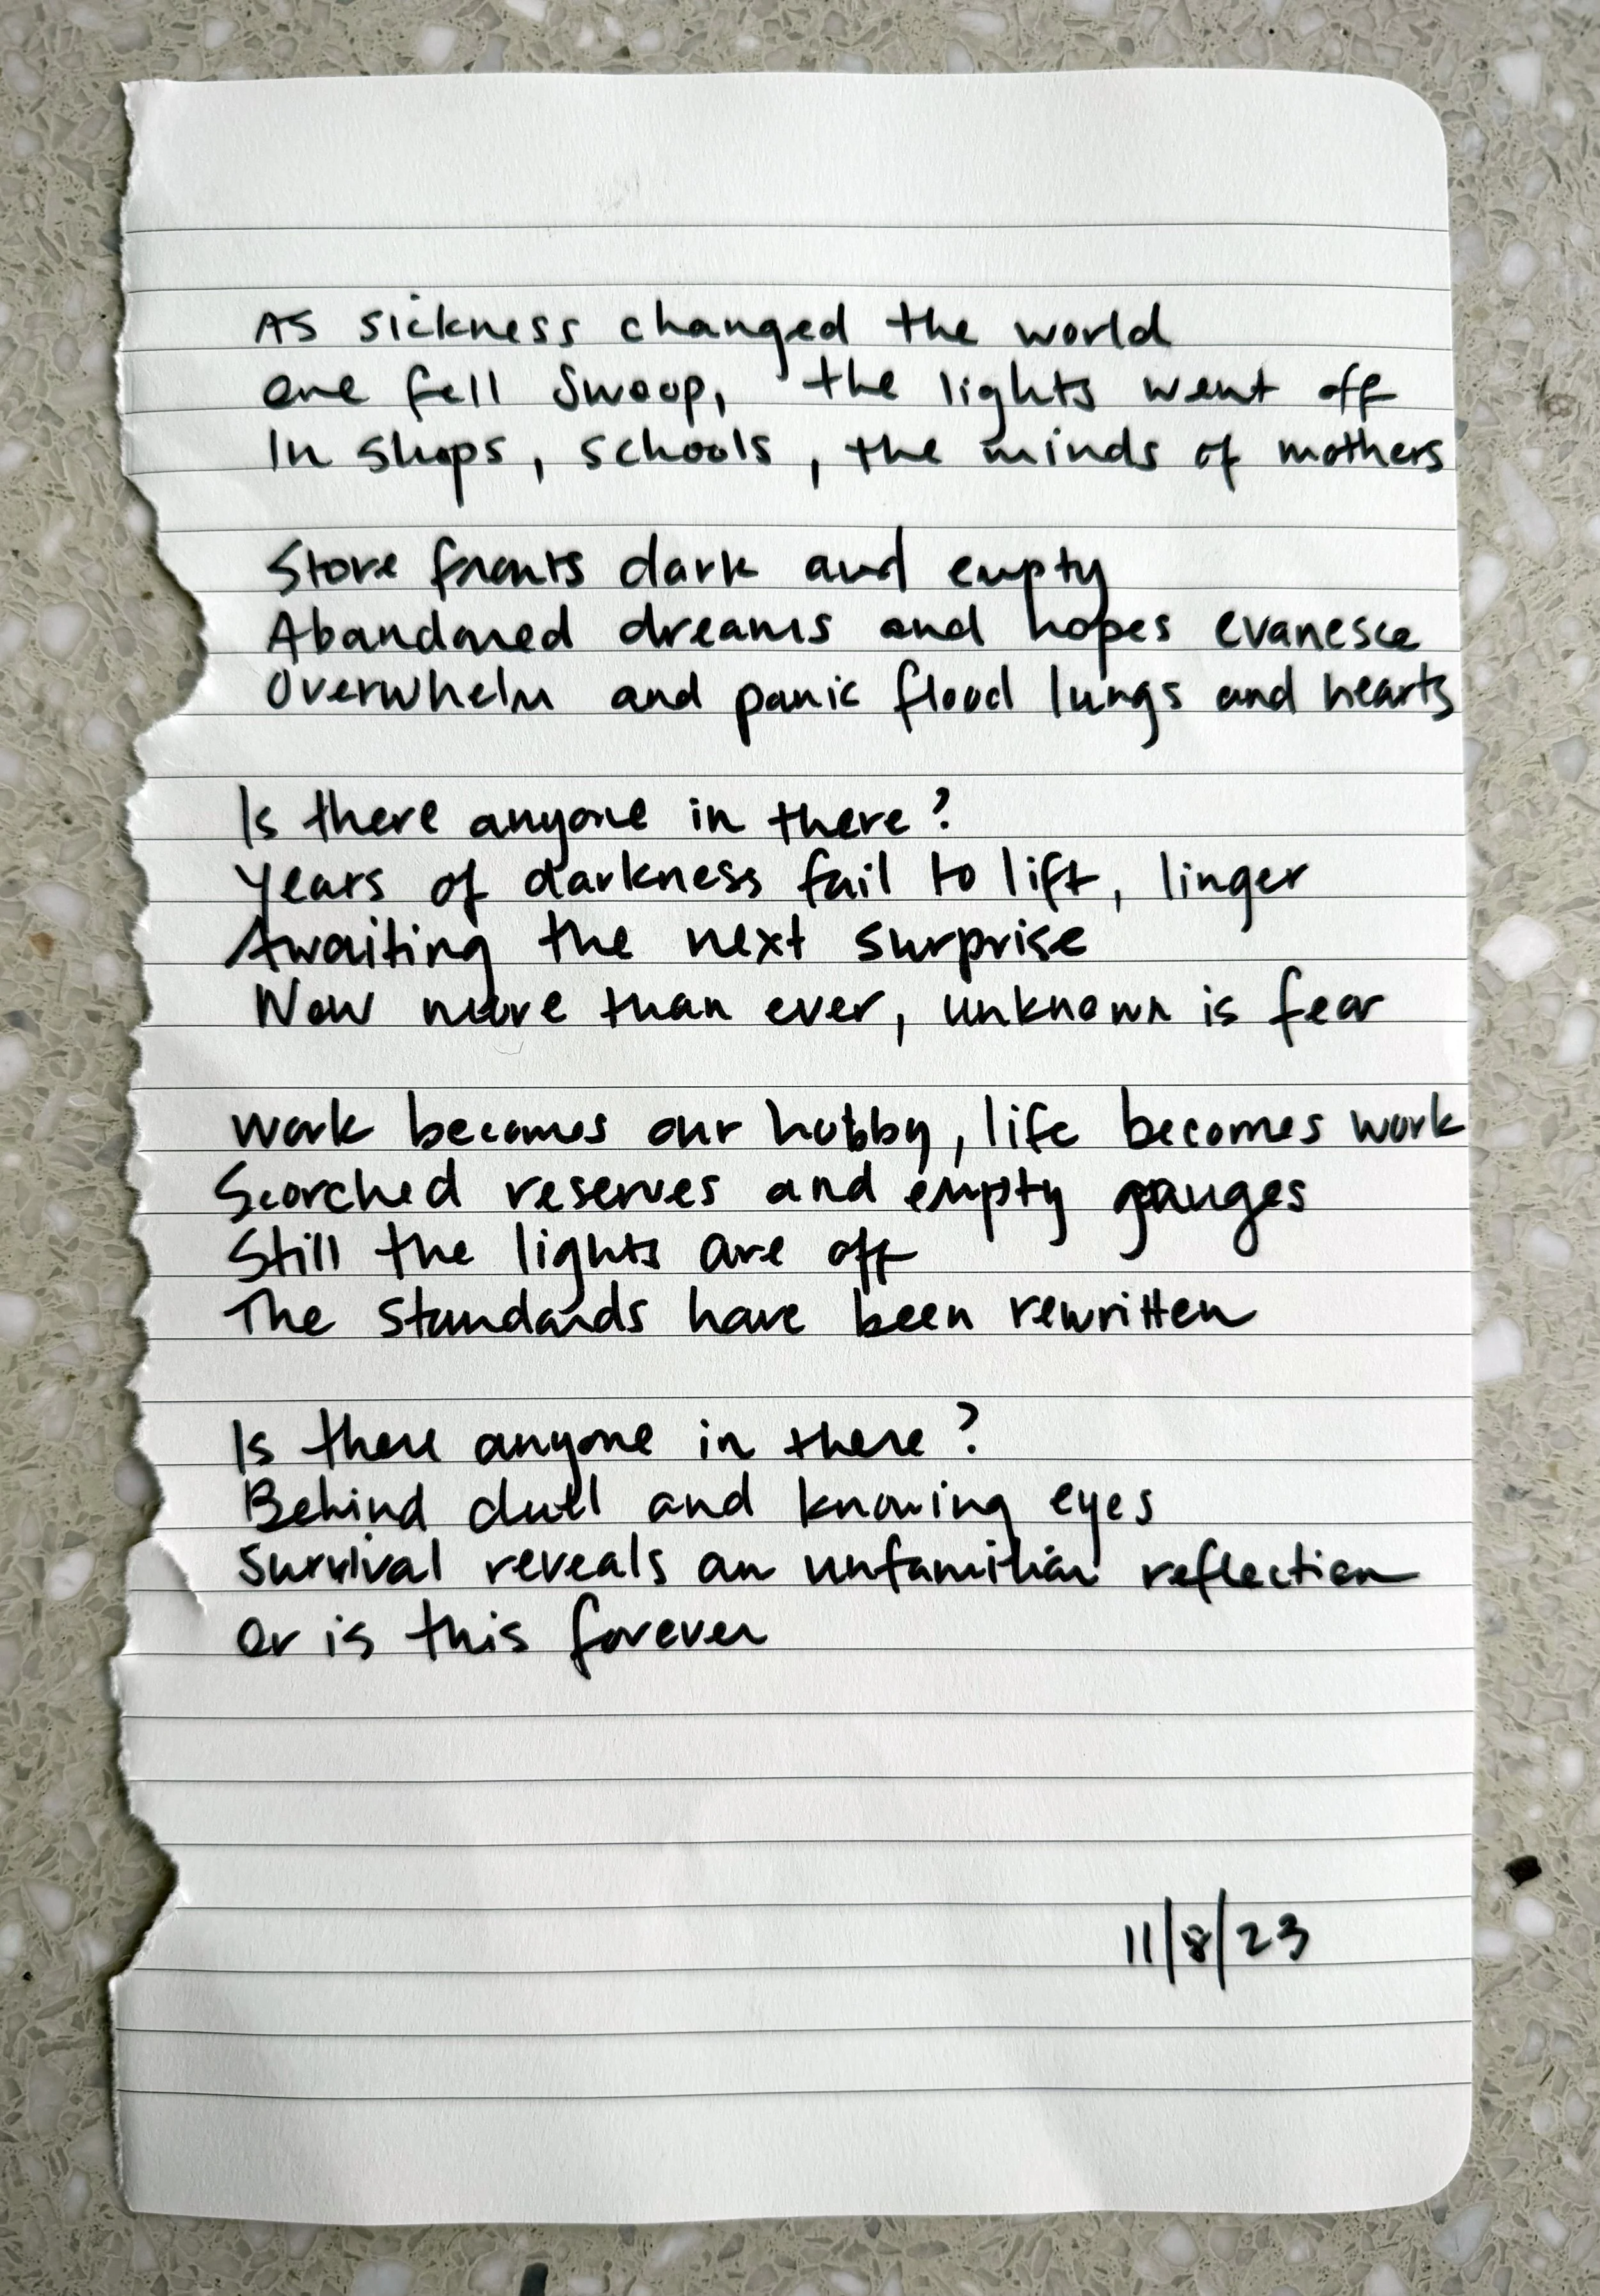 As sickness changed the world
one fell swoop, the lights went off
In shops, schools, the minds of mothers
Store fronts dark and empty
Abandoned dreams and hopes evanesce
Overwhelm and panic flood lungs and hearts
Is there anyone in there?
Years of darkness fail to lift, linger
Awaiting the next surprise
Now more than ever, unknown is fear
Work becomes our hobby, life becomes work
Scorched reserves and empty gauges
Still the lights are off
The standards have been rewritten
Is there anyone in there?
Behind dull and knowing eyes
Survival reveals an unfamiliar reflection
Or is this forever
11/8/23